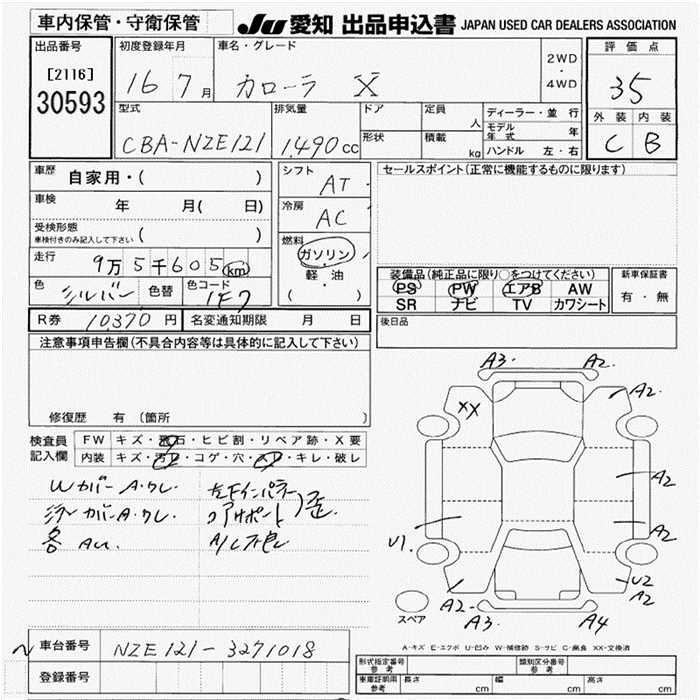 車内保管・守衛保管
JU 愛知 出品申込書 JAPAN USED CAR DEALERS ASSOCIATION
出品番号
[2116]
30593
初度登録年月
16 7月
車名・グレード
カローラ X
2WD
・
4WD
評価点
35
外装 内装
C B
型式
CBA-NZE121
排気量
1,490cc
ドア
形状
定員
人
積載
kg
ディーラー・並行
モデル年式 年
ハンドル 左・右
車歴
自家用・( )
車検
年 月( 日)
受検形態
車検付きのみ記入して下さい ( )
走行
9万5千605km
色
シルバー
色替
色コード
1F7
シフト
AT
冷房
AC
燃料
ガソリン
・
軽・油
( )
セールスポイント(正常に機能するものに限ります)
装備品(純正品に限り○をつけてください)
PS PW エアB AW
SR ナビ TV カワシート
新車保証書
有・無
R券 10,370円
名変通知期限 月 日
後日品
注意事項申告欄(不具合内容等は具体的に記入して下さい)
修復歴 有 〔箇所 〕
検査員
記入欄
FW キズ・飛石・ヒビ割・リペア跡・X要
内装 キズ・汚れ・コゲ・穴・スレ・キレ・破レ
Wカバー A・ワレ.
カバー A・ワレ.
各 AU.
左Fインパネ
コアサポート 歪
A/C不良
A3. A2.
XX A2.
A2
A2
U1.
U2
A2
A2
A3. A4
スペア
A-キズ E-エクボ U-凹み W-補修跡 S-サビ C-腐食 XX-交換済
車台番号
NZE121-3271018
登録番号
形式指定番号
参考
類別区分番号
参考
車庫証明用
参考
長さ cm
幅 cm
高さ cm